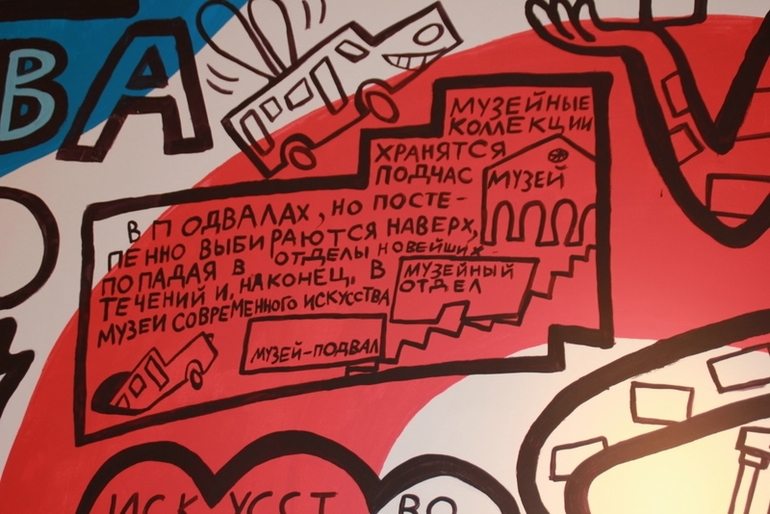 ВА
МУЗЕЙНЫЕ
КОЛЛЕКЦИИ
ХРАНЯТСЯ
ПОДЧАС
МУЗЕЙ
В ПОДВАЛАХ, НО ПОСТЕ-
ПЕННО ВЫБИРАЮТСЯ НАВЕРХ,
ПОПАДАЯ В ОТДЕЛЫ НОВЕЙШИХ
ТЕЧЕНИЙ И, НАКОНЕЦ, В
МУЗЕИ СОВРЕМЕННОГО ИСКУССТВА
МУЗЕЙНЫЙ
ОТДЕЛ
МУЗЕЙ-ПОДВАЛ
ИСКУССТВО